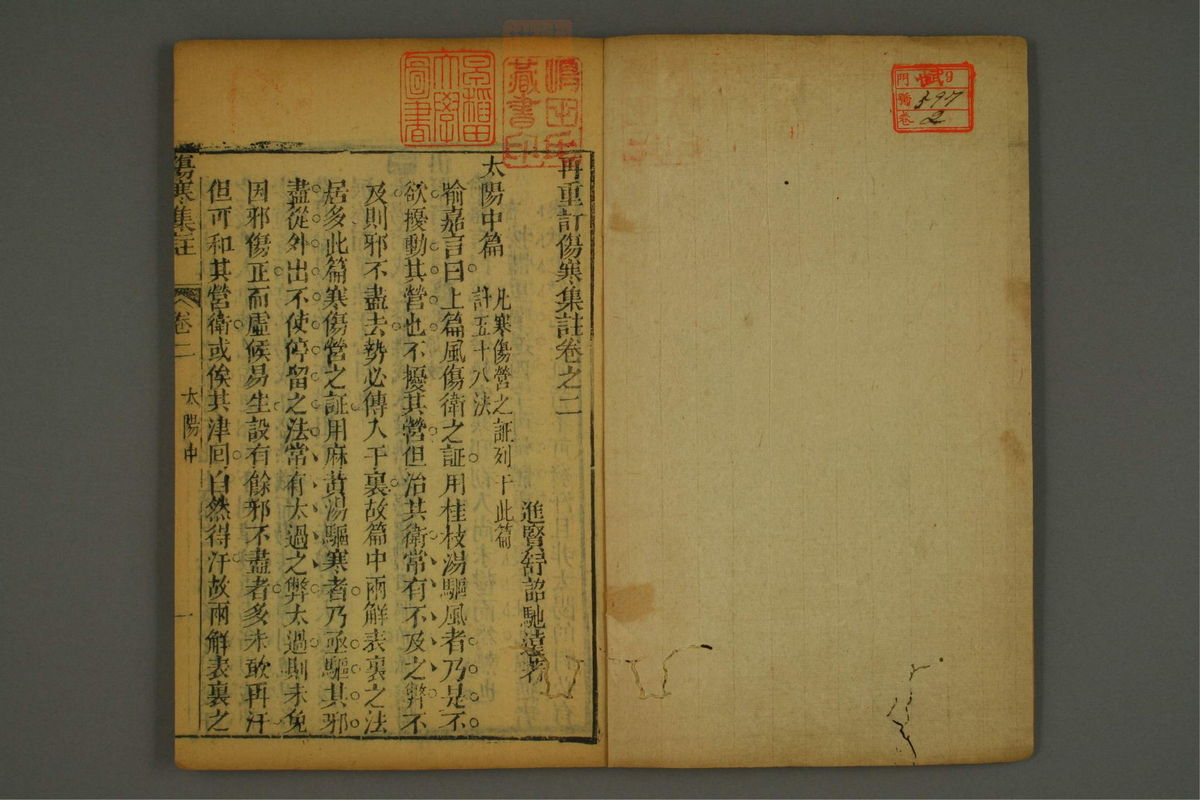 門 9
號 397
卷 2
再重訂傷寒集註卷之二
進賢舒詔馳遠著
太陽中篇
凡寒傷營之証列于此篇
計五十八法
喻嘉言曰上篇風傷衛之証用桂枝湯驅風者乃是不
欲擾動其營也不擾其營但治其衛常有不及之弊不
及則邪不盡去勢必傳入于裏故篇中兩解表裏之法
居多此篇寒傷營之証用麻黃湯驅寒者乃亟驅其邪
盡從外出不使停留之法常有太過之弊太過則未免
因邪傷正而虛候易生設有餘邪不盡者多未敢再汗
但可和其營衛或俟其津回自然得汗故兩解表裏之
傷寒集註
卷二
太陽中
一
早稻田大學圖書
藏書印